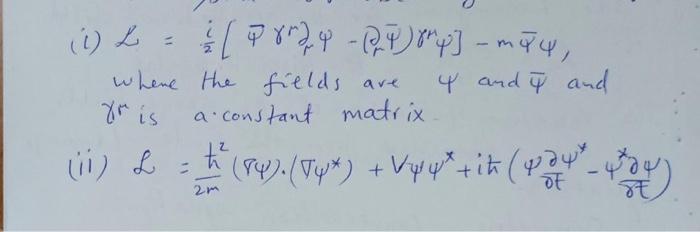 (i) ℒ = i/2 [ ψ̄ γ^μ ∂_μ ψ - (∂_μ ψ̄) γ^μ ψ ] - m ψ̄ ψ,
where the fields are ψ and ψ̄ and
γ^μ is a constant matrix
(ii) ℒ = ħ²/2m (∇ψ).(∇ψ*) + Vψψ* + iħ (ψ ∂ψ*/∂t - ψ* ∂ψ/∂t)